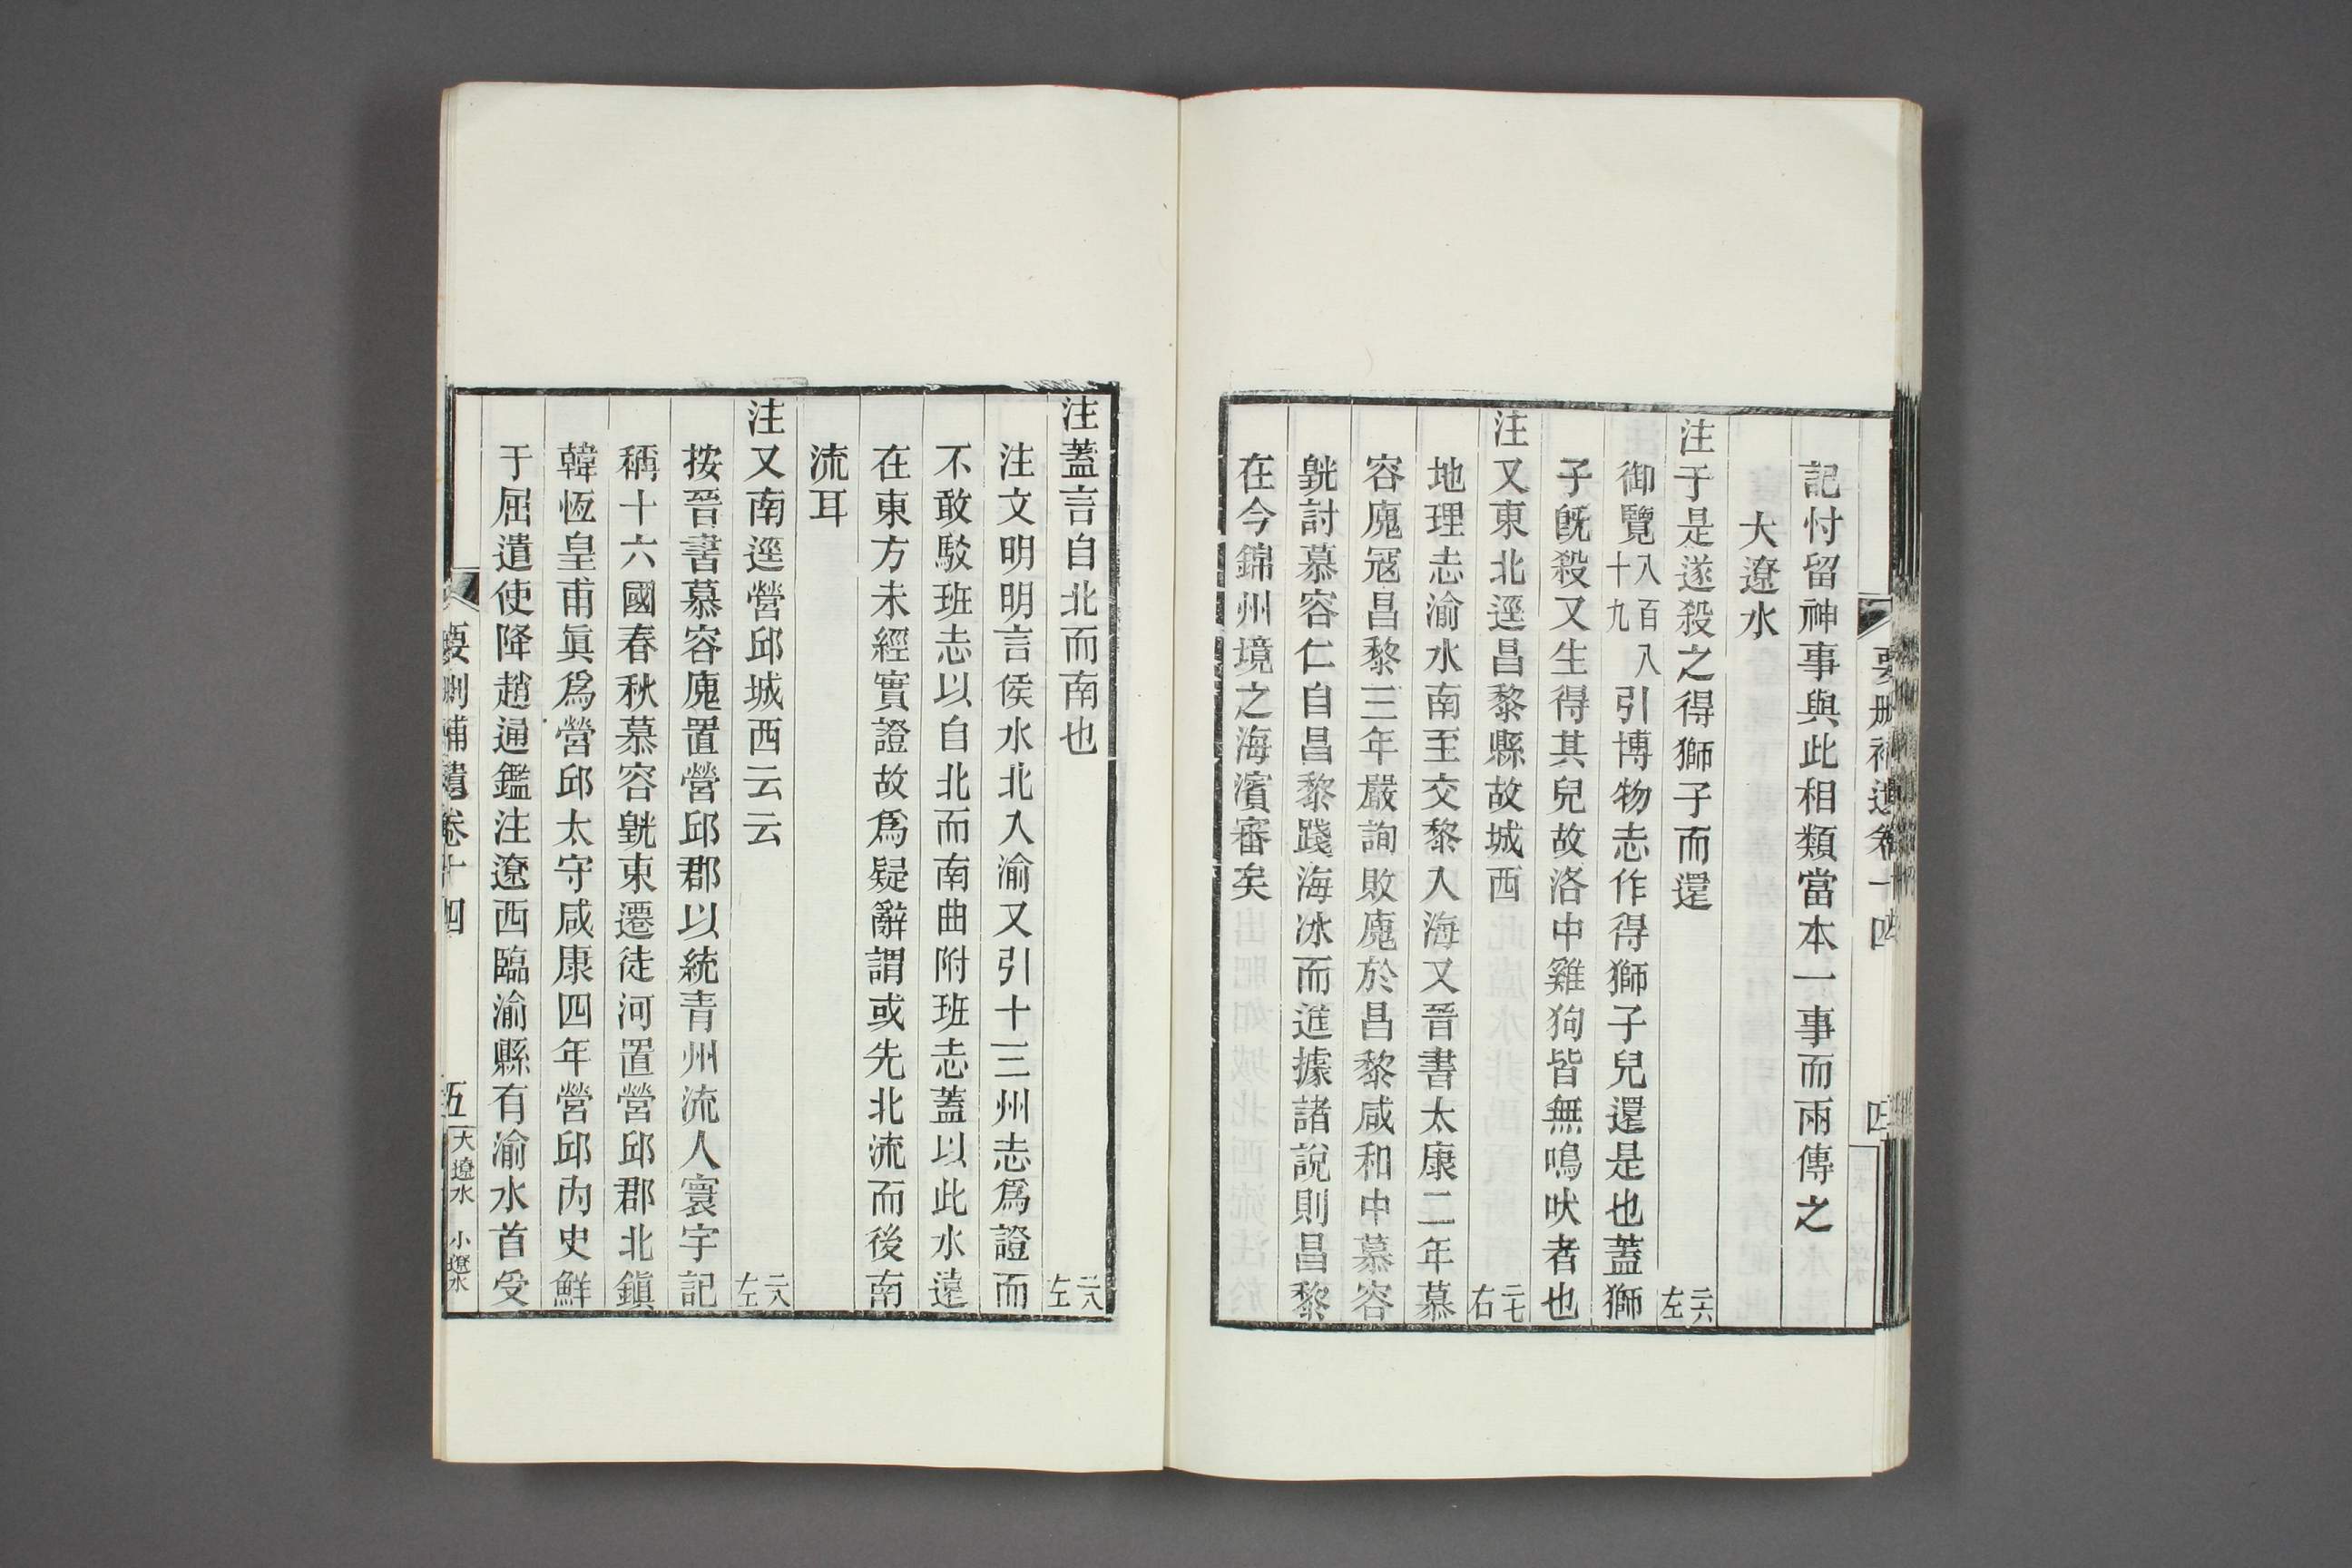 記忖留神事與此相類當本一事而兩傳之
大遼水
注于是遂殺之得獅子而還 二六左
御覽八百八十九引博物志作得獅子兒還是也蓋獅
子旣殺又生得其兒故洛中雞狗皆無鳴吠者也
注又東北逕昌黎縣故城西 二七右
地理志渝水南至交黎入海又晉書太康二年慕
容廆寇昌黎三年嚴詢敗廆於昌黎咸和中慕容
皝討慕容仁自昌黎踐海冰而進據諸說則昌黎
在今錦州境之海濱審矣
注蓋言自北而南也 二八左
注文明明言侯水北入渝又引十三州志爲證而
不敢駁班志以自北而南曲附班志蓋以此水遠
在東方未經實證故爲疑辭謂或先北流而後南
流耳
注又南逕營邱城西云云 二八左
按晉書慕容廆置營邱郡以統青州流人寰宇記
稱十六國春秋慕容皝東遷徒河置營邱郡北鎭
韓恆皇甫眞爲營邱太守咸康四年營邱內史鮮
于屈遣使降趙通鑑注遼西臨渝縣有渝水首受
要刪補遺卷十四 五 大遼水 小遼水